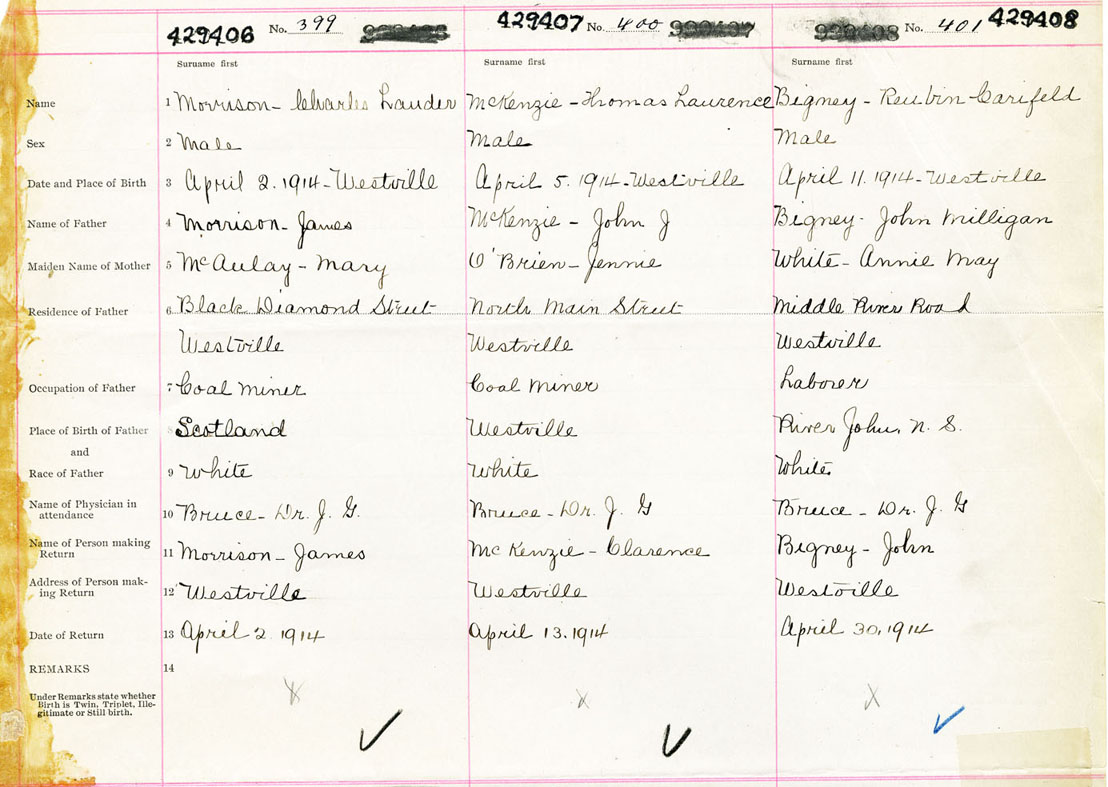 429406 No. 399 429407 No. 400 No. 401 429408
Surname first Surname first Surname first
Name 1 Morrison - Charles Lauder McKenzie - Thomas Laurence Bigney - Reubin Garifeld
Sex 2 Male Male Male
Date and Place of Birth 3 April 2. 1914 - Westville April 5. 1914 - Westville April 11. 1914 - Westville
Name of Father 4 Morrison - James McKenzie - John J Bigney - John Milligan
Maiden Name of Mother 5 McAulay - Mary O'Brien - Jennie White - Annie May
Residence of Father 6 Black Diamond Street North Main Street Middle River Road
Westville Westville Westville
Occupation of Father 7 Coal miner Coal miner Laborer
Place of Birth of Father 8 Scotland Westville River John, N. S.
and
Race of Father 9 White White White
Name of Physician in
attendance 10 Bruce - Dr. J. G. Bruce - Dr. J. G Bruce - Dr. J. G
Name of Person making
Return 11 Morrison - James McKenzie - Clarence Bigney - John
Address of Person mak-
ing Return 12 Westville Westville Westville
Date of Return 13 April 2. 1914 April 13. 1914 April 30, 1914
REMARKS 14
Under Remarks state whether
Birth is Twin, Triplet, Ille-
gitimate or Still birth.